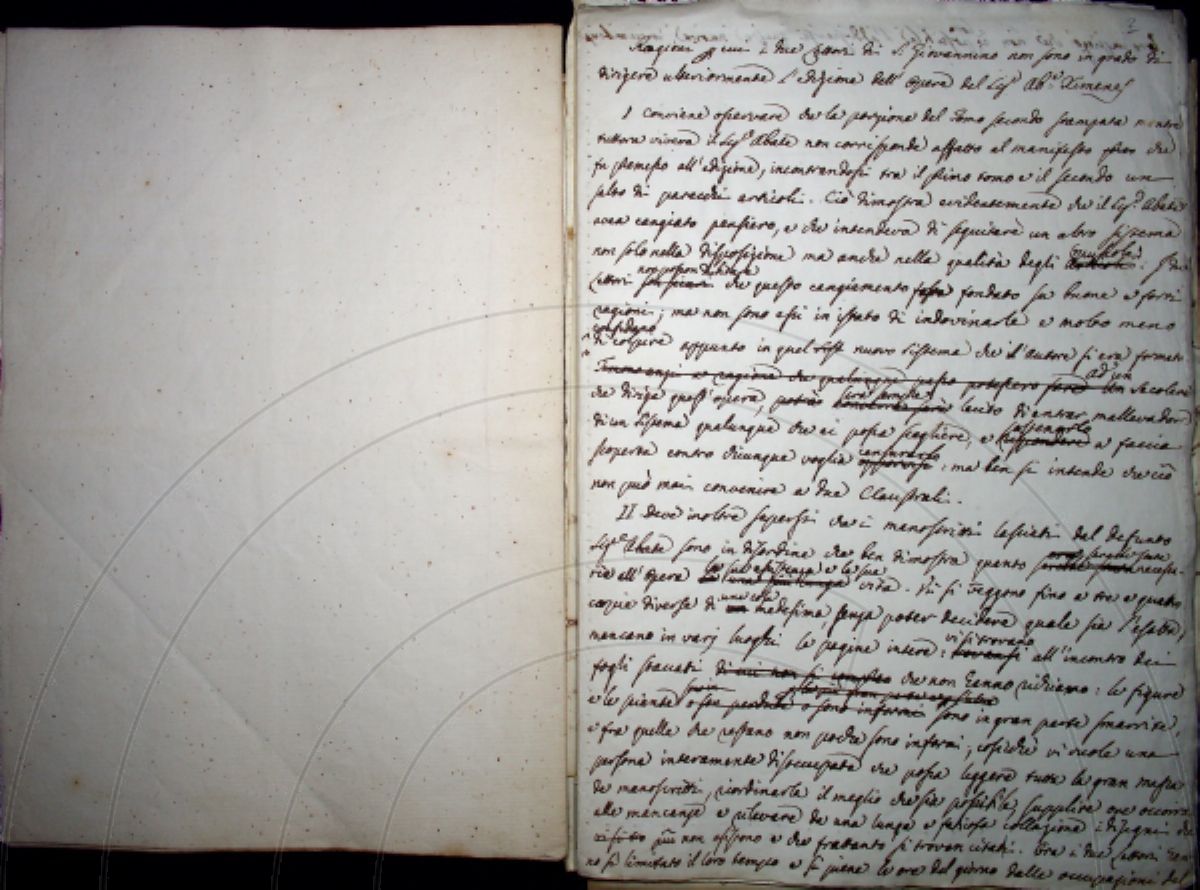 3
Ragioni per cui i due Lettori di S. Giovannino non sono in grado di
dirigere ulteriormente l'edizione dell'Opera del Sig.e Ab.e Ximenes
I conviene osservare che la porzione del Tomo secondo stampata mentre
tuttora viveva il Sig.e Abate non corrisponde affatto al manifesto che
fu premesso all'edizione, incontrandosi tra il primo tomo e il secondo un
salto di parecchi articoli. Ciò dimostra evidentemente che il Sig.e Abate
avea cangiato pensiero, e che intendeva di seguitare un altro sistema
non solo nella disposizione ma anche nella qualità degli opuscoli. I due
Lettori non pongono che questo cangiamento fosse fondato su buone e forti
ragioni; ma non sono essi in istato di indovinarle e molto meno
confidano
di colpire appunto in quel nuovo sistema che l'autore si era formato
ad un
Secolare
che diriga quest'opera, sarà sempre lecito di entrar mallevadore
di un sistema qualunque che ei possa scegliere, e sostenerlo a faccia
scoperta contro chiunque voglia censurarlo: ma ben si intende che ciò
non può mai convenire a due Claustrali.
II Deve inoltre sapersi che i manoscritti lasciati dal defunto
Sig.e Abate sono in disordine che ben dimostra quanto sarebbe stata necessa-
ria all'Opera la sua assistenza e la sua vita. Vi si veggono fino a tre e quattro
copie diverse di una cosa medesima, senza poter decidere quale sia l'esatta;
mancano in varj luoghi le pagine intere: vi si trovano all'incontro dei
fogli staccati che non hanno richiamo: le figure
e le piante sono in gran parte smarrite,
e fra quelle che restano non poche sono informi, cosicché vi vuole una
persona interamente disoccupata che possa leggere tutta la gran massa
de manoscritti, riordinarla il meglio che sia possibile, supplire ove occorra
alle mancanze e rilevare da una lunga e faticosa collazione i disegni che
più non esistono e che frattanto si trovan citati. Ora i due Lettori han-
no sì limitato il loro tempo e sì piene le ore del giorno dalle occupazioni del